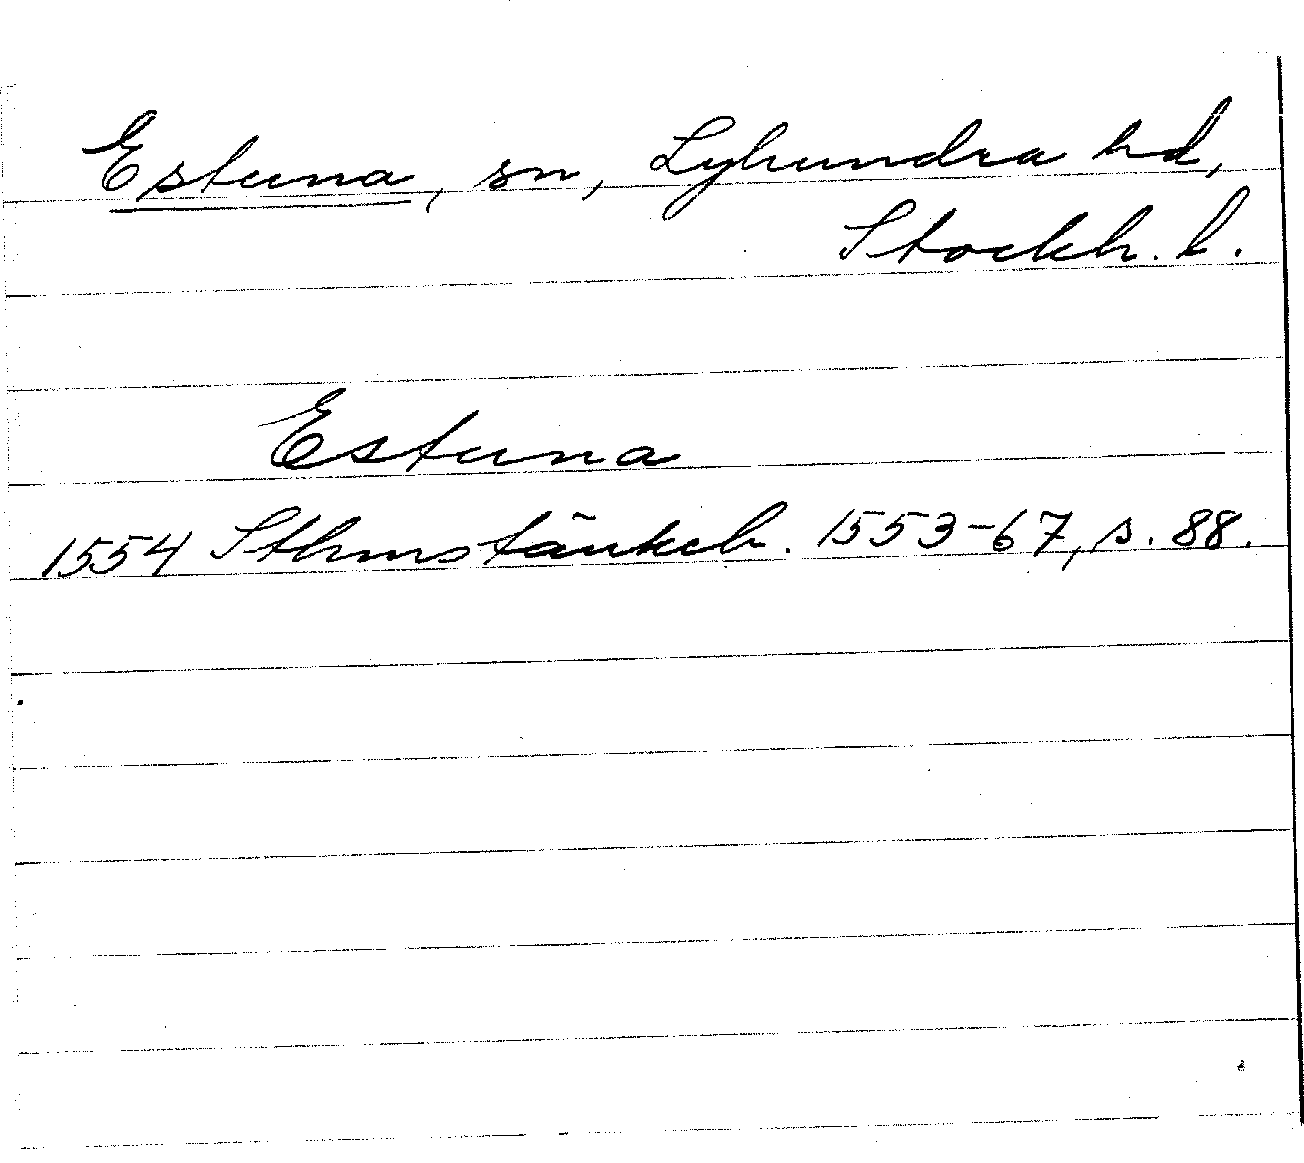 Estuna, sn, Lyhundra hd,
Stockh. l.
Estuna
1554 Sthms tänkeb. 1553-67, s. 88.